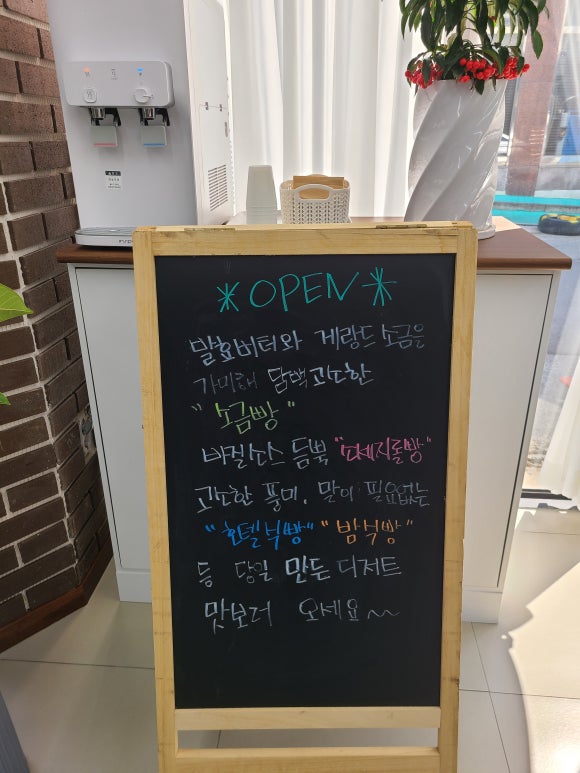 *OPEN*
발효버터와 게랑드 소금을
가미해 담백고소한
"소금빵"
바질소스 듬뿍 "소세지롤빵"
고소한 풍미, 말이 필요없는
"호텔식빵" "밤식빵"
등 당일 만든 디저트
맛보러 오세요~